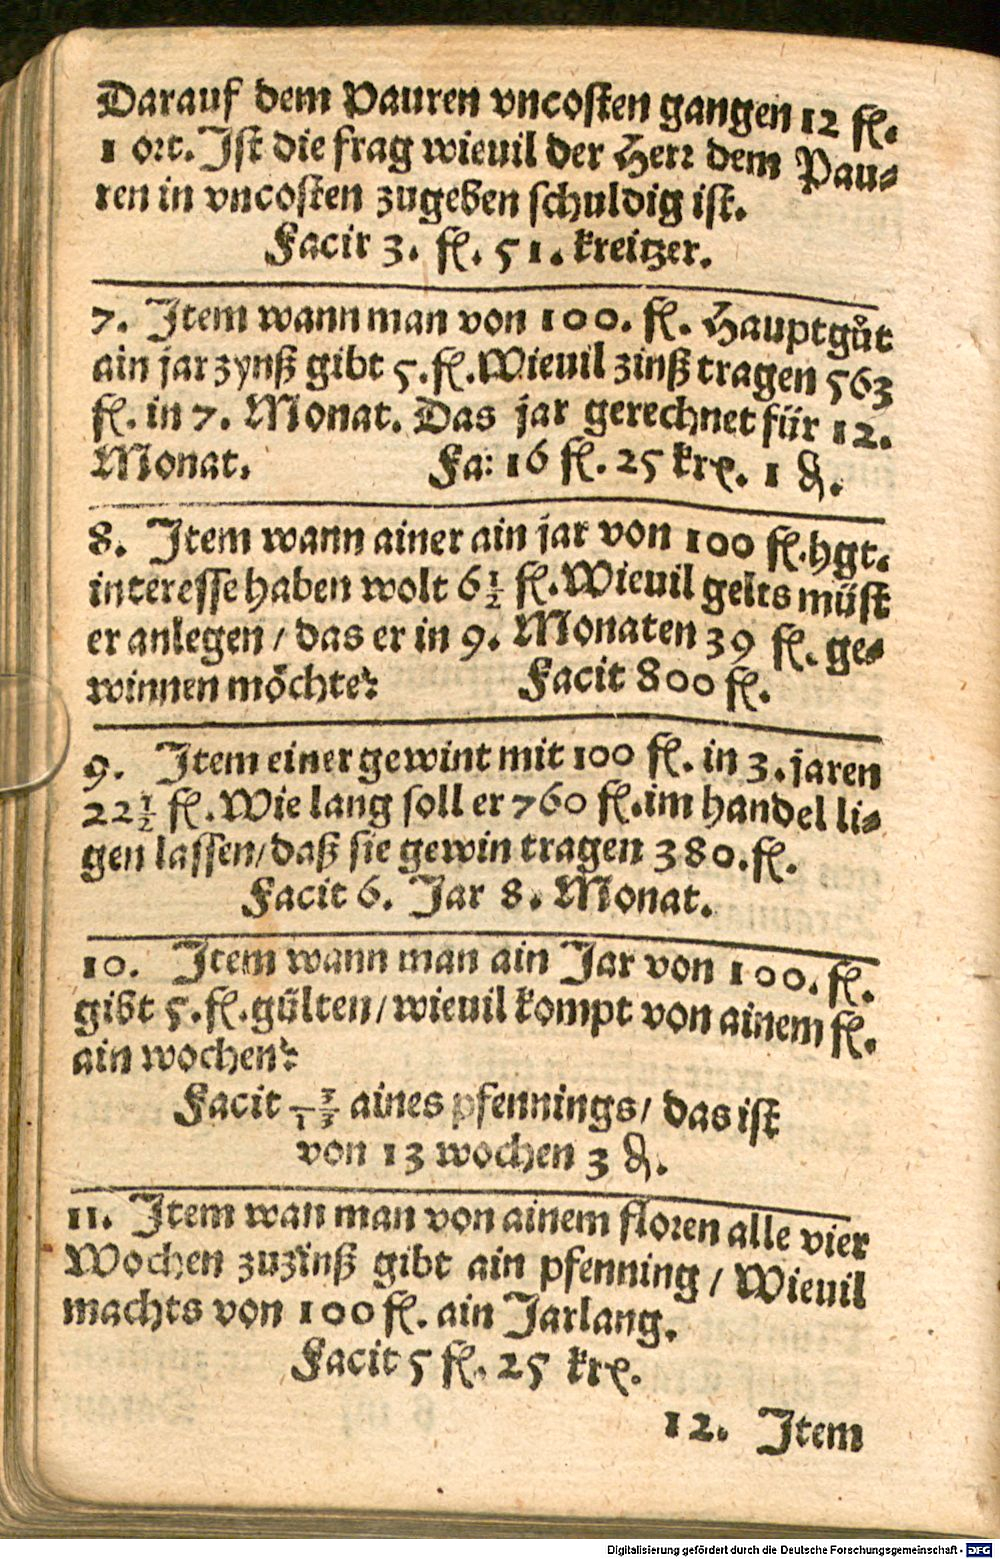 Darauf dem Pauren vncosten gangen 12 fl.
1 ort. Ist die frag wieuil der Herr dem Pau⸗
ren in vncosten zugeben schuldig ist.
Facit 3. fl. 51. kreitzer.
7. Item wann man von 100. fl. Hauptgůt
ain jar zynß gibt 5. fl. Wieuil zinß tragen 563
fl. in 7. Monat. Das jar gerechnet für 12.
Monat. Fa: 16 fl. 25 krx. 1 ₰.
8. Item wann ainer ain jar von 100 fl. hgt.
interesse haben wolt 6 1/2 fl. Wieuil gelts müst
er anlegen / das er in 9. Monaten 39 fl. ge⸗
winnen möchte? Facit 800 fl.
9. Item einer gewint mit 100 fl. in 3. jaren
22 1/2 fl. Wie lang soll er 760 fl. im handel li⸗
gen lassen / daß sie gewin tragen 380. fl.
Facit 6. Jar 8. Monat.
10. Item wann man ain Jar von 100. fl.
gibt 5. fl. gülten / wieuil kompt von ainem fl.
ain wochen?
Facit 3/13 aines pfennings / das ist
von 13 wochen 3 ₰.
11. Item wan man von ainem floren alle vier
Wochen zuzinß gibt ain pfenning / Wieuil
machts von 100 fl. ain Jarlang.
Facit 5 fl. 25 krx.
12. Item
Digitalisierung gefördert durch die Deutsche Forschungsgemeinschaft - DFG